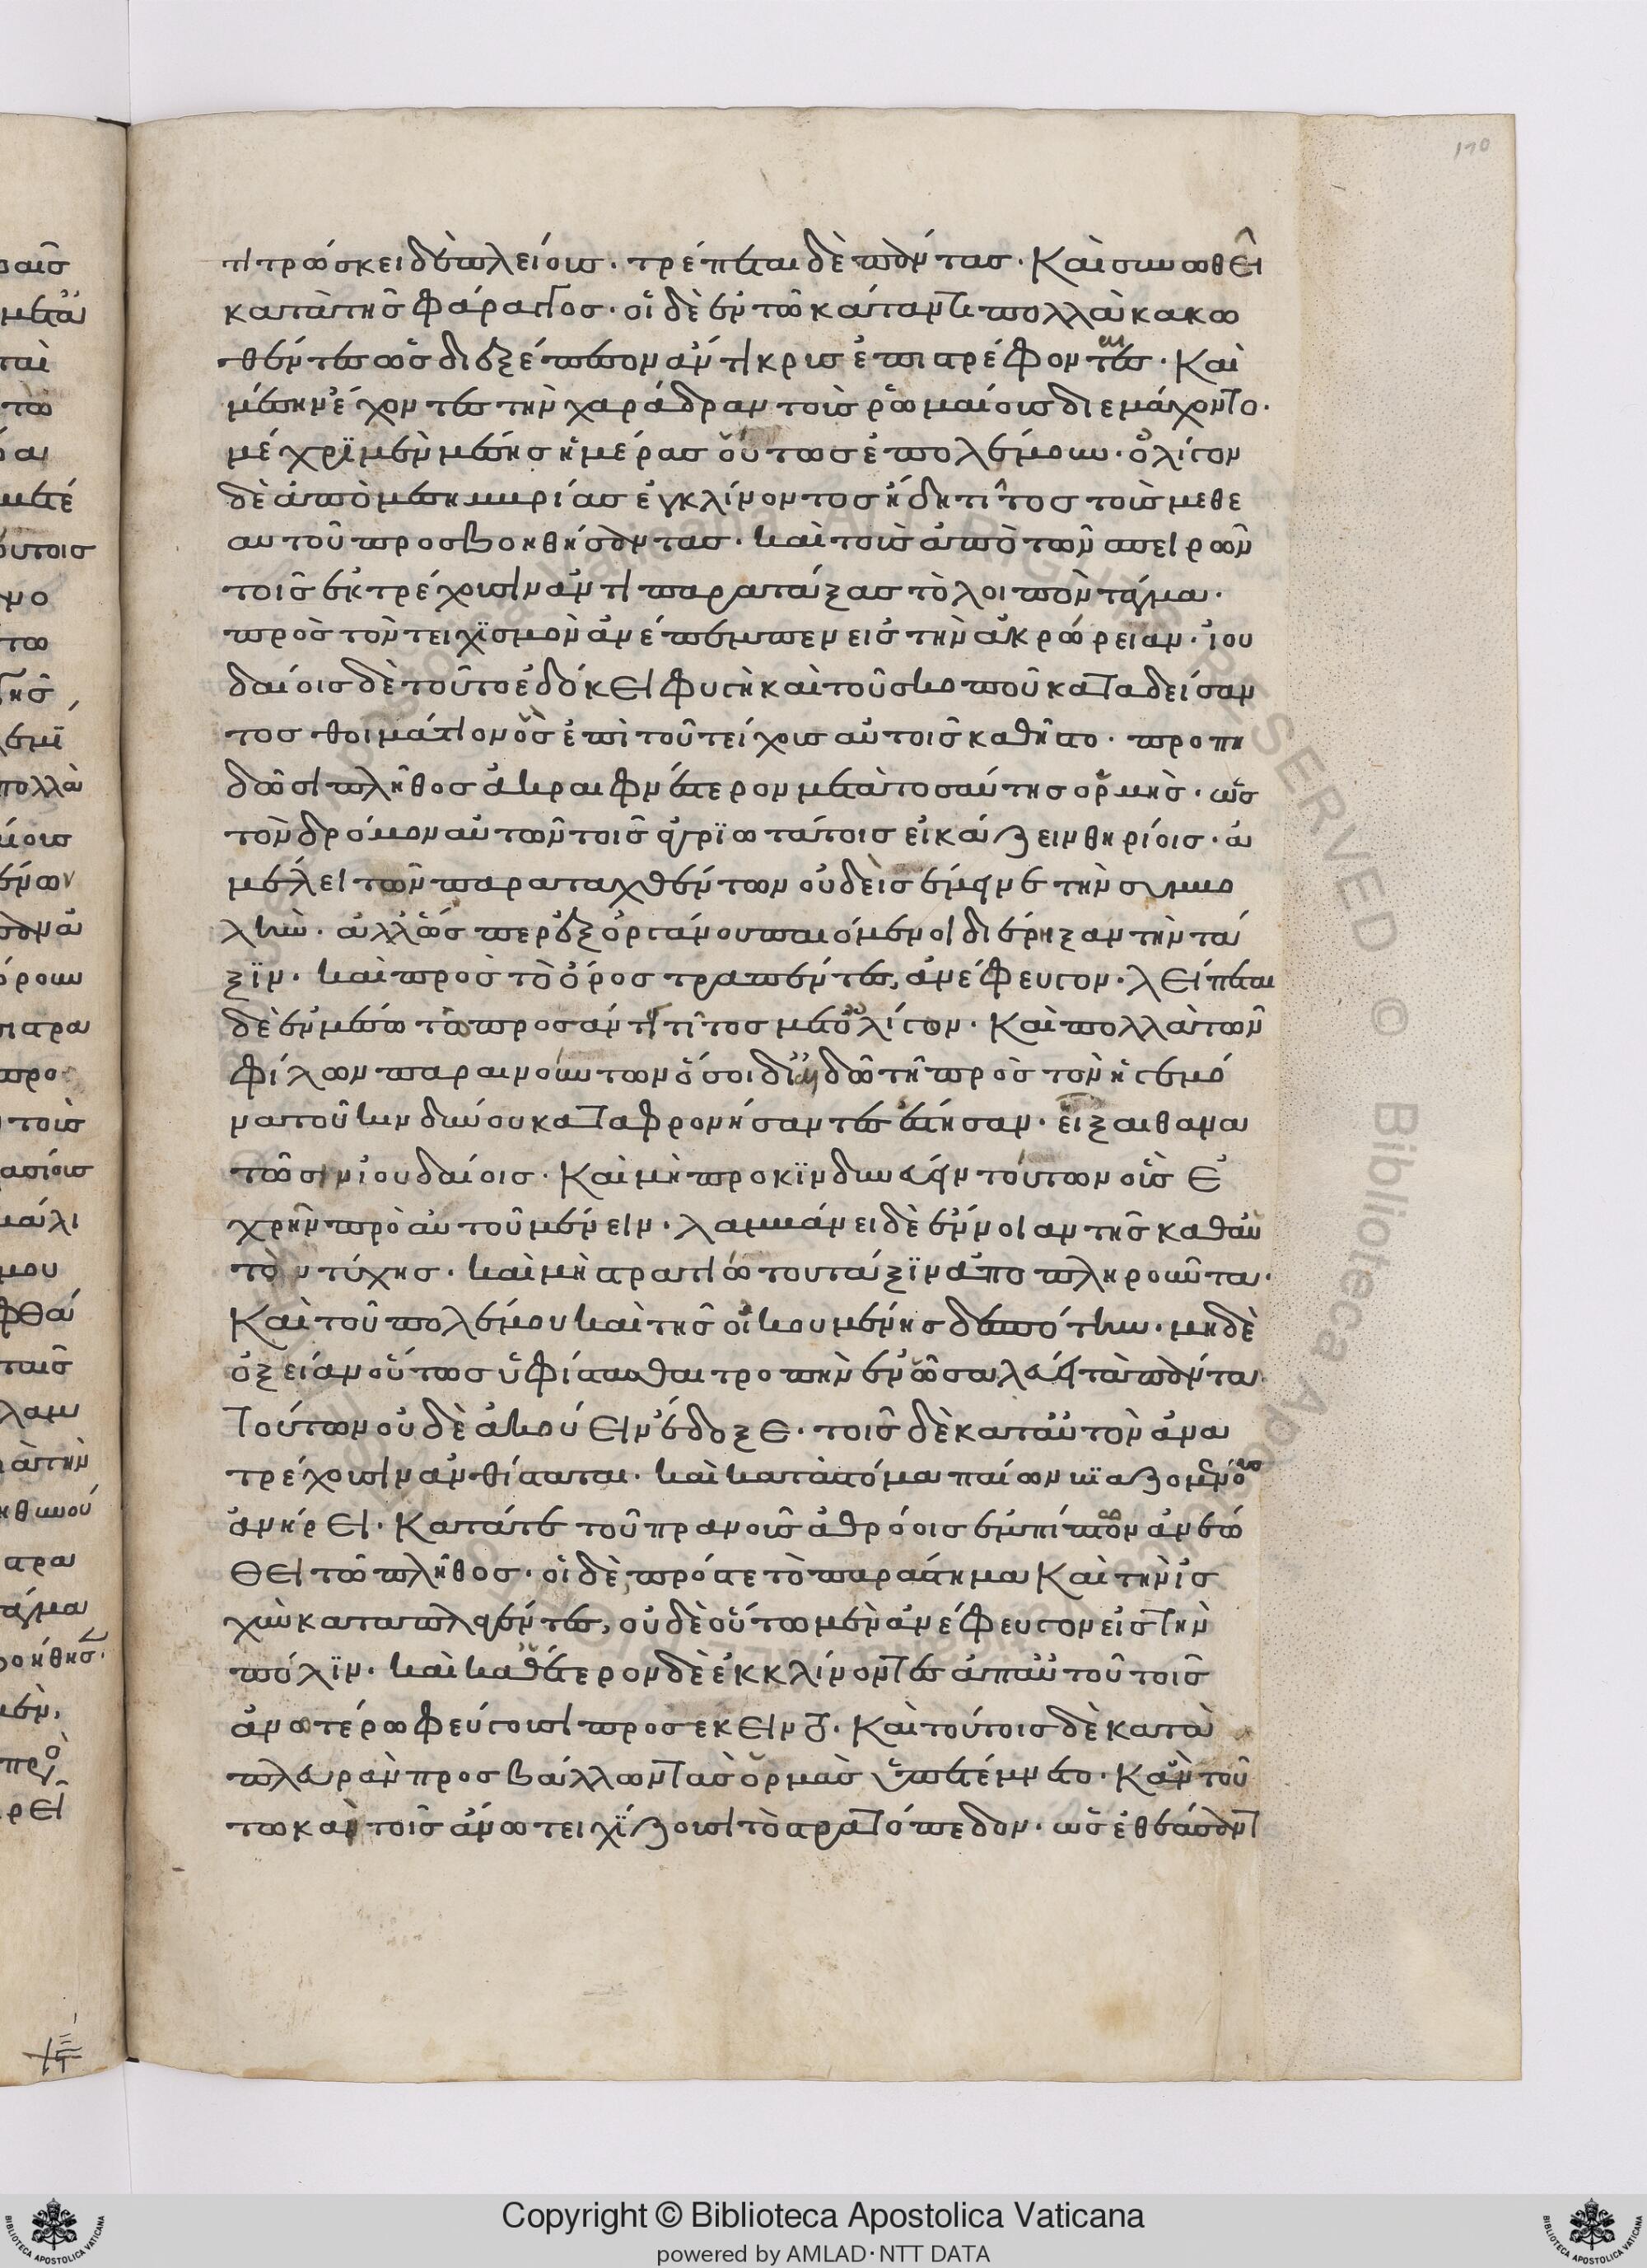 τιτρώσκει δὲ πλείους. τρέπεται δὲ πάντας. Καὶ συνωθεῖ
κατὰ τῆς φάραγγος. οἱ δὲ ἐν τῶ κατάντει πολλὰ κακω
θέντες ὡς διεξέπεσον ἀντικρὺς ἐπιστρέφονται. Καὶ
μέσην ἔχοντες τὴν χαράδραν τοῖς ῥωμαίοις διεμάχοντο.
μέχρι μὲν μέσης ἡμέρας οὕτως ἐπολέμουν. ὀλίγον
δὲ ἀπὸ μεσημβρίας ἐγκλίνοντος ἤδη τίτος τοὺς μεθ ε
αυτοῦ προσβοηθήσοντας. καὶ τοὺς ἀπὸ τῶν σπειρῶν
τοῖς ἐκτρέχουσιν ἀντιπαρατάξας τὸ λοιπὸν τάγμα.
πρὸς τὸν τειχισμὸν ἀνέπεμπεν εἰς τὴν ἀκρώρειαν. ἰου
δαίοις δὲ τοῦτο ἐδόκει φυγὴ καὶ τοῦ σκοποῦ καταδείσαν
τος θοιμάτιον ὃς ἐπὶ τοῦ τείχους αὐτοῖς καθῆστο. προπη
δῶσι πλῆθος ἀκραιφνέστερον μετὰ τοσαύτης ὁρμῆς. ὡς
τὸν δρόμον αὐτῶν τοῖς ἀγριωτάτοις εἰκάζειν θηρίοις. ἀ
μέλει τῶν παραταχθέντων οὐδεὶς ἔμεινε τὴν συμπο
λκὴν. ἀλλ' ὥσπερ ἐξ ὀργάνου παιόμενοι διέρρηξαν τὴν τά
ξιν. καὶ πρὸς τὸ ὄρος τραπέντες, ἀνέφευγον. λείπεται
δὲ ἐν μέσω τῶ προσάντει τίτος μετ' ὀλίγων. Καὶ πολλὰ τῶν
φίλων παραινούντων ὅσοι δι' αἰδῶ τὴν πρὸς τὸν ἡγεμό
να τοῦ κινδύνου καταφρονήσαντες ἔστησαν. εἶξαι θανα
τῶσιν ἰουδαίοις. Καὶ μὴ προκινδυνεύειν τούτων οὓς ἐ
χρῆν πρὸ αὐτοῦ μένειν. λαμβάνειν δὲ ἔννοιαν τῆς καθ' αὑ
τὸν τύχης. καὶ μὴ στρατιώτου τάξιν ἀποπληροῦντα.
Καὶ τοῦ πολέμου καὶ τῆς οἰκουμένης δεσπότην. μηδὲ
ὀξεῖαν οὕτως ὑφίστασθαι τροπὴν ἐν ὧ σαλεύει τὰ πάντα.
Τούτων οὐδὲ ἀκούειν ἔδοξε. τοῖς δὲ κατ' αὐτὸν ἀνα
τρέχουσιν ἀνθίσταται. καὶ κατὰ στόμα παίων βιαζομένους
ἀνήρει. Κατά τε τοῦ πρανοῦς ἀθρόοις ἐμπίπτων ἀνεώ
θει τὸ πλῆθος. οἱ δὲ, πρός τε τὸ παράστημα Καὶ τὴν ἰσ
χὺν καταπλαγέντες, οὐδὲ οὕτω μὲν ἀνέφευγον εἰς τὴν
πόλιν. καὶ καθ' ἕτερον δὲ ἐκκλίνοντες ἀπ' αὐτοῦ τοῖς
ἀνωτέρω φεύγουσι προσέκειντο. Καὶ τούτοις δὲ κατὰ
πλευρὰν προσβάλλων τὰς ὁρμὰς ὑπετέμνετο. Κἀν τού
τω καὶ τοῖς ἄνω τειχίζουσι τὸ στρατόπεδον. ὡς ἐθεάσαντ
110
Copyright © Biblioteca Apostolica Vaticana
powered by AMLAD·NTT DATA